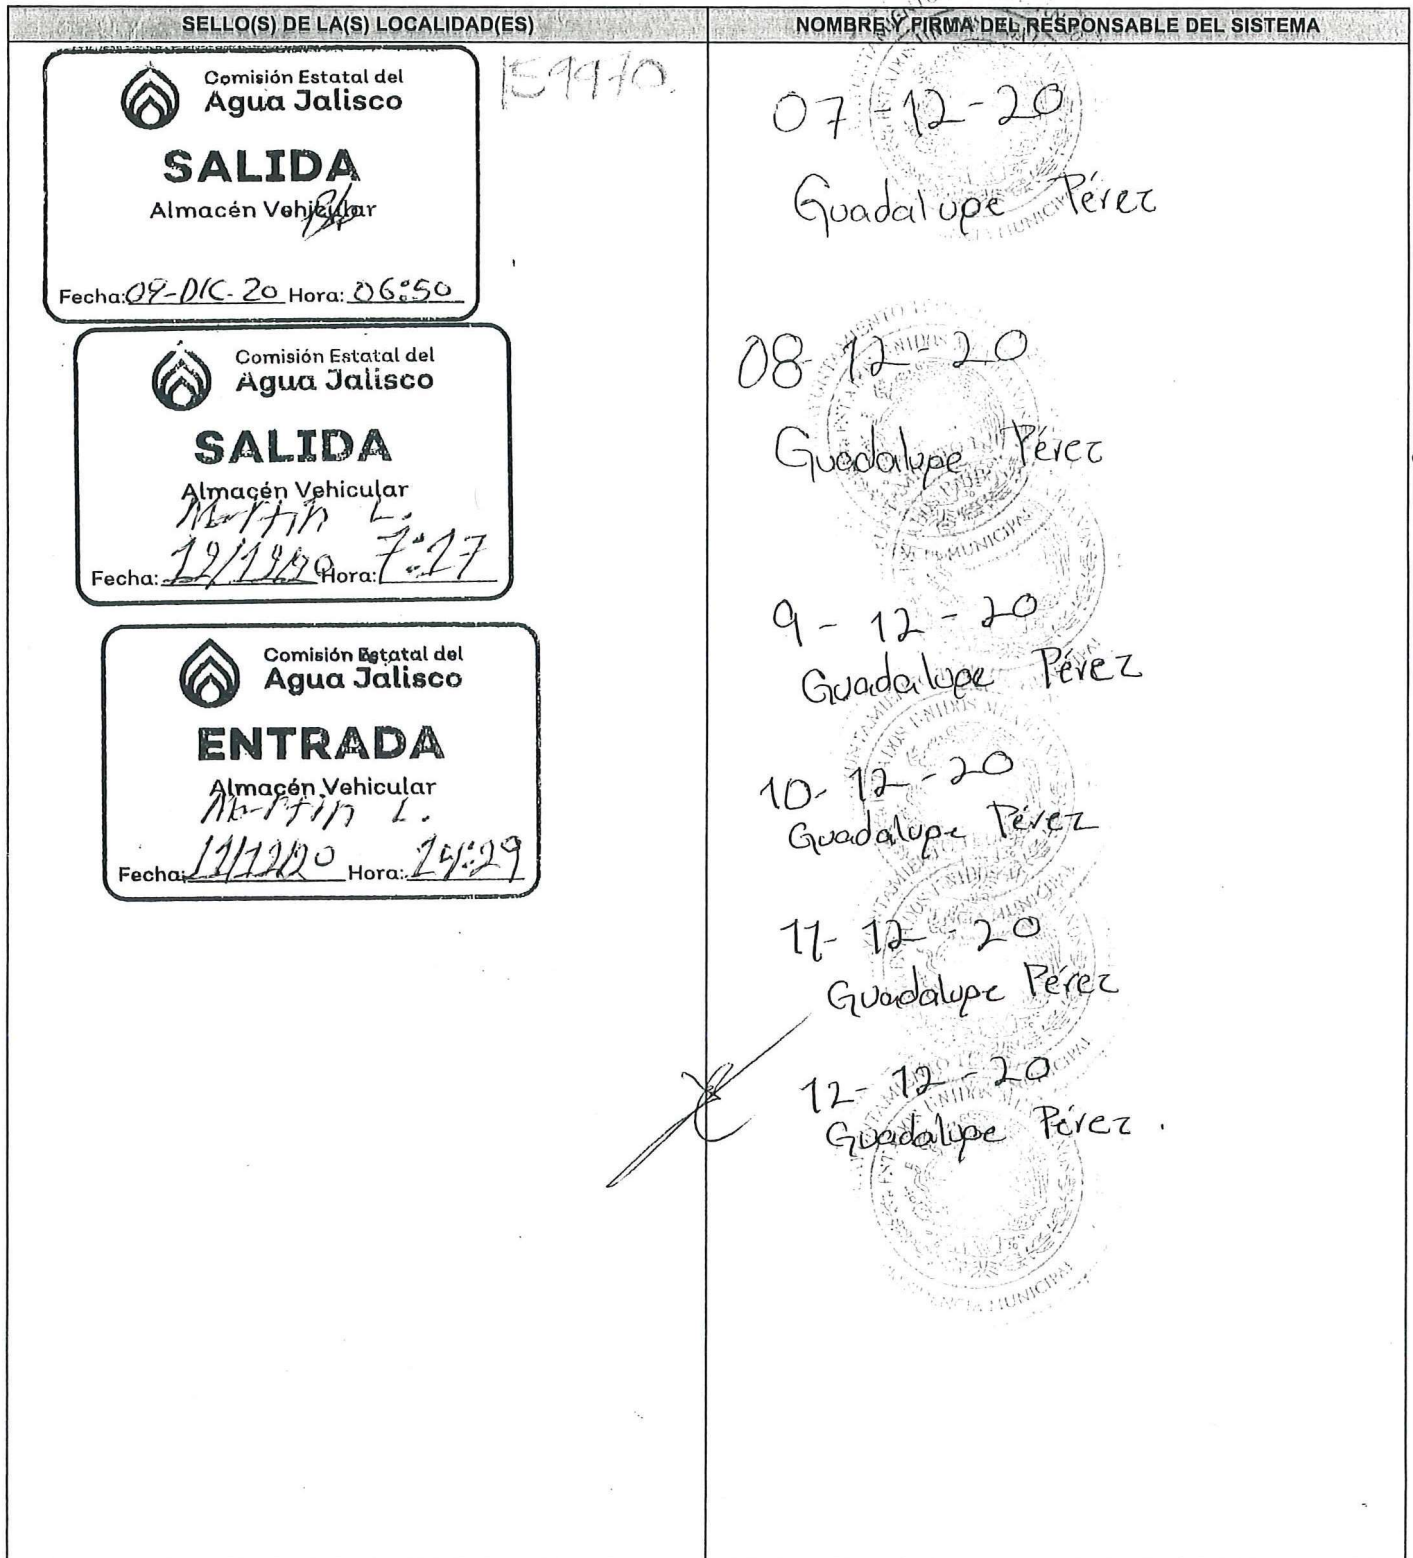 SELLO(S) DE LA(S) LOCALIDAD(ES)
Comisión Estatal del
Agua Jalisco
SALIDA
Almacén Vehicular
Fecha: 09-DIC-20 Hora: 06:50
Comisión Estatal del
Agua Jalisco
SALIDA
Almacén Vehicular
Martin L.
Fecha: 12/12/20 Hora: 7:17
Comisión Estatal del
Agua Jalisco
ENTRADA
Almacén Vehicular
Martin L.
Fecha: 11/12/20 Hora: 14:29
NOMBRE Y FIRMA DEL RESPONSABLE DEL SISTEMA
07-12-20
Guadalupe Pérez
08-12-20
Guadalupe Pérez
MUNICIPAL
9-12-20
Guadalupe Pérez
10-12-20
Guadalupe Pérez
11-12-20
Guadalupe Pérez
12-12-20
Guadalupe Pérez.
MUNICIPAL